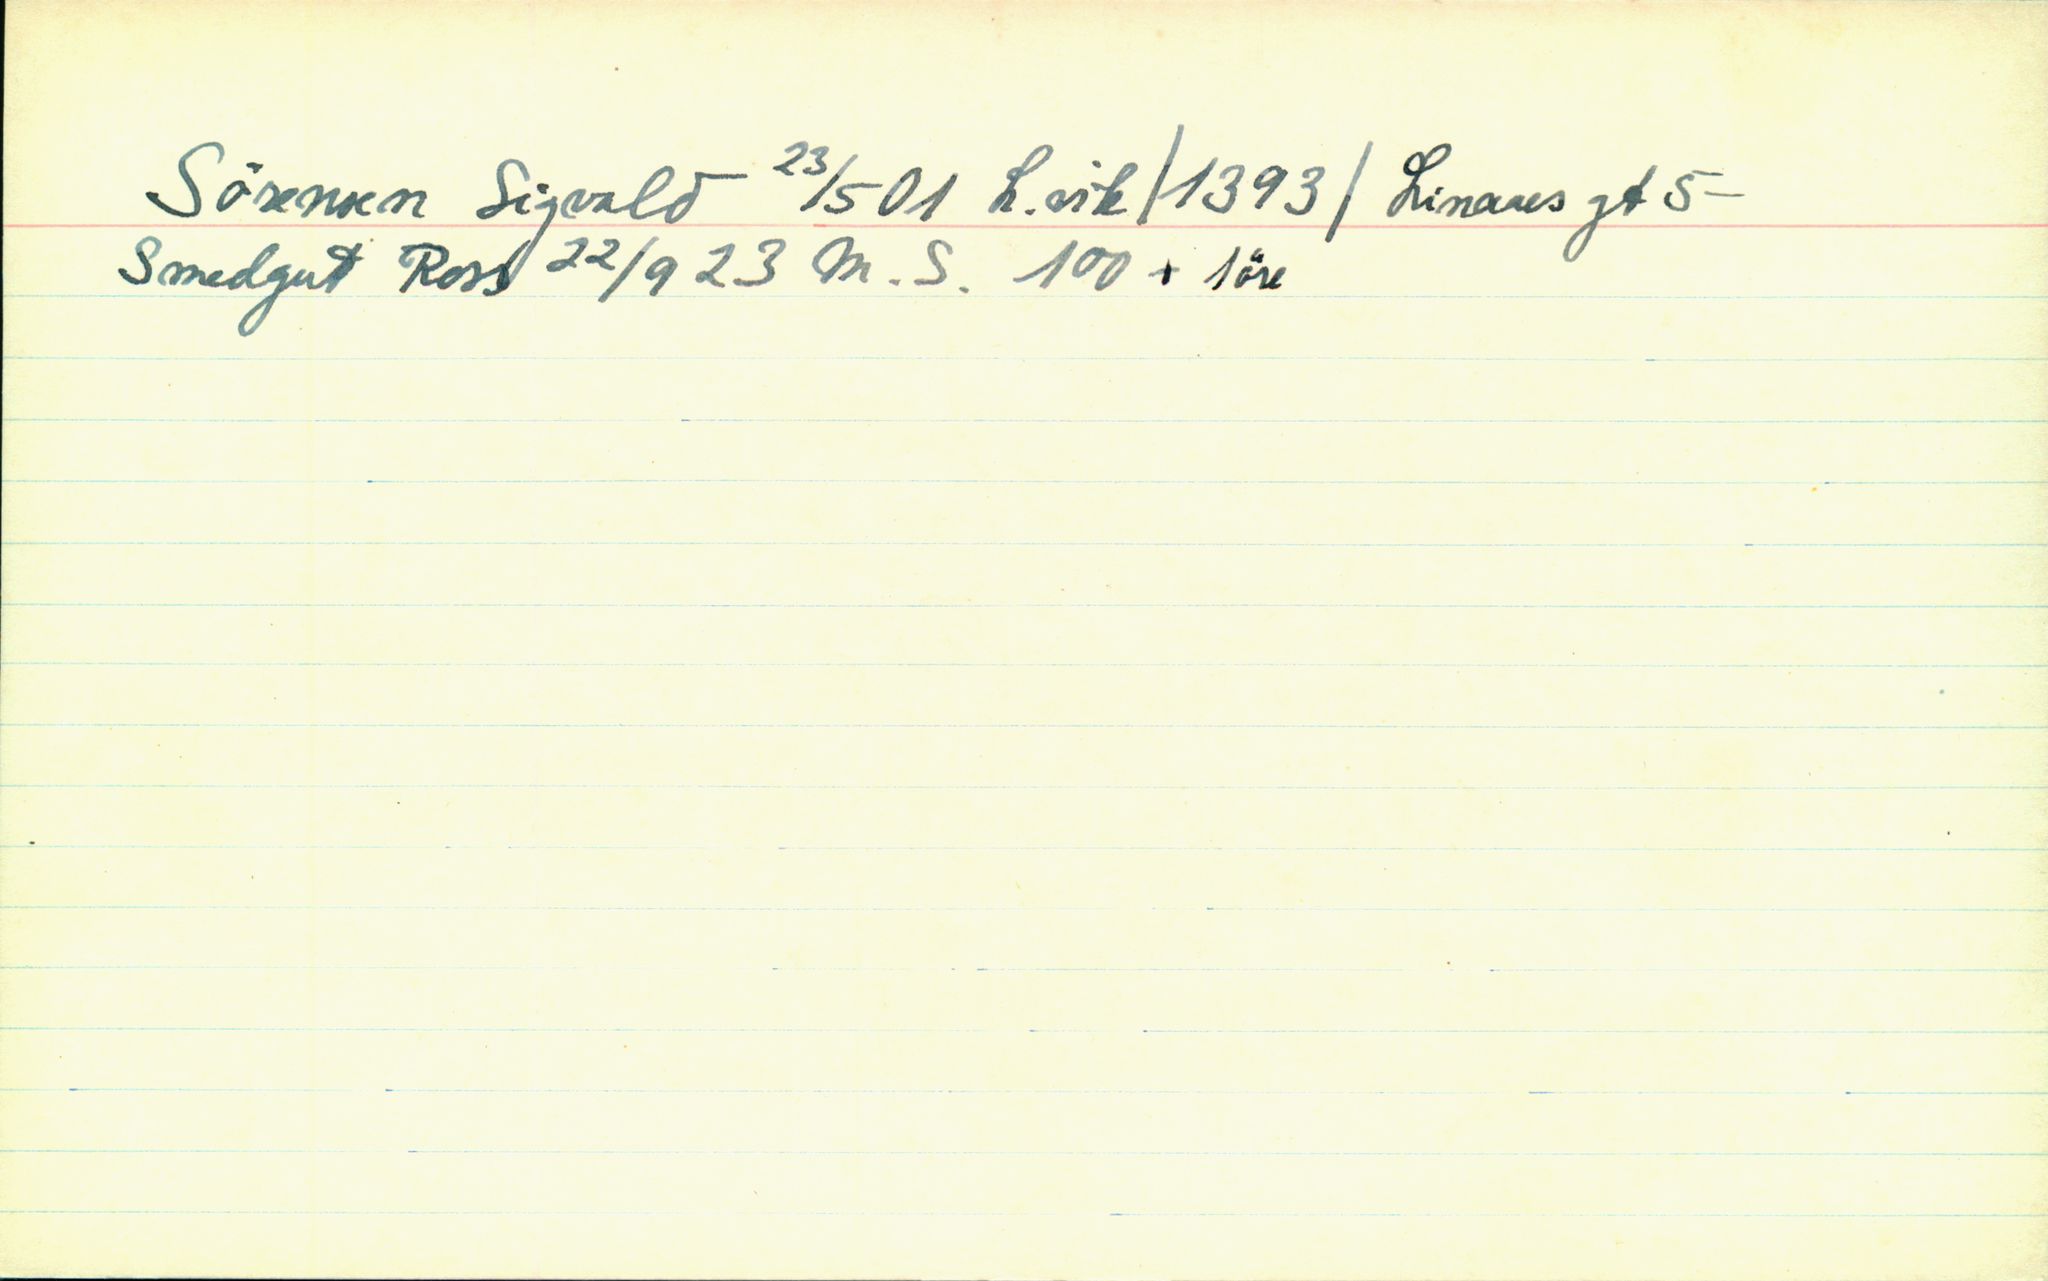 Sörensen Sigvald 23/5 01 L.vik /1393/ Linaaes gt 5-
Smedgut Ross 22/9 23 M.S. 100 + 1öre